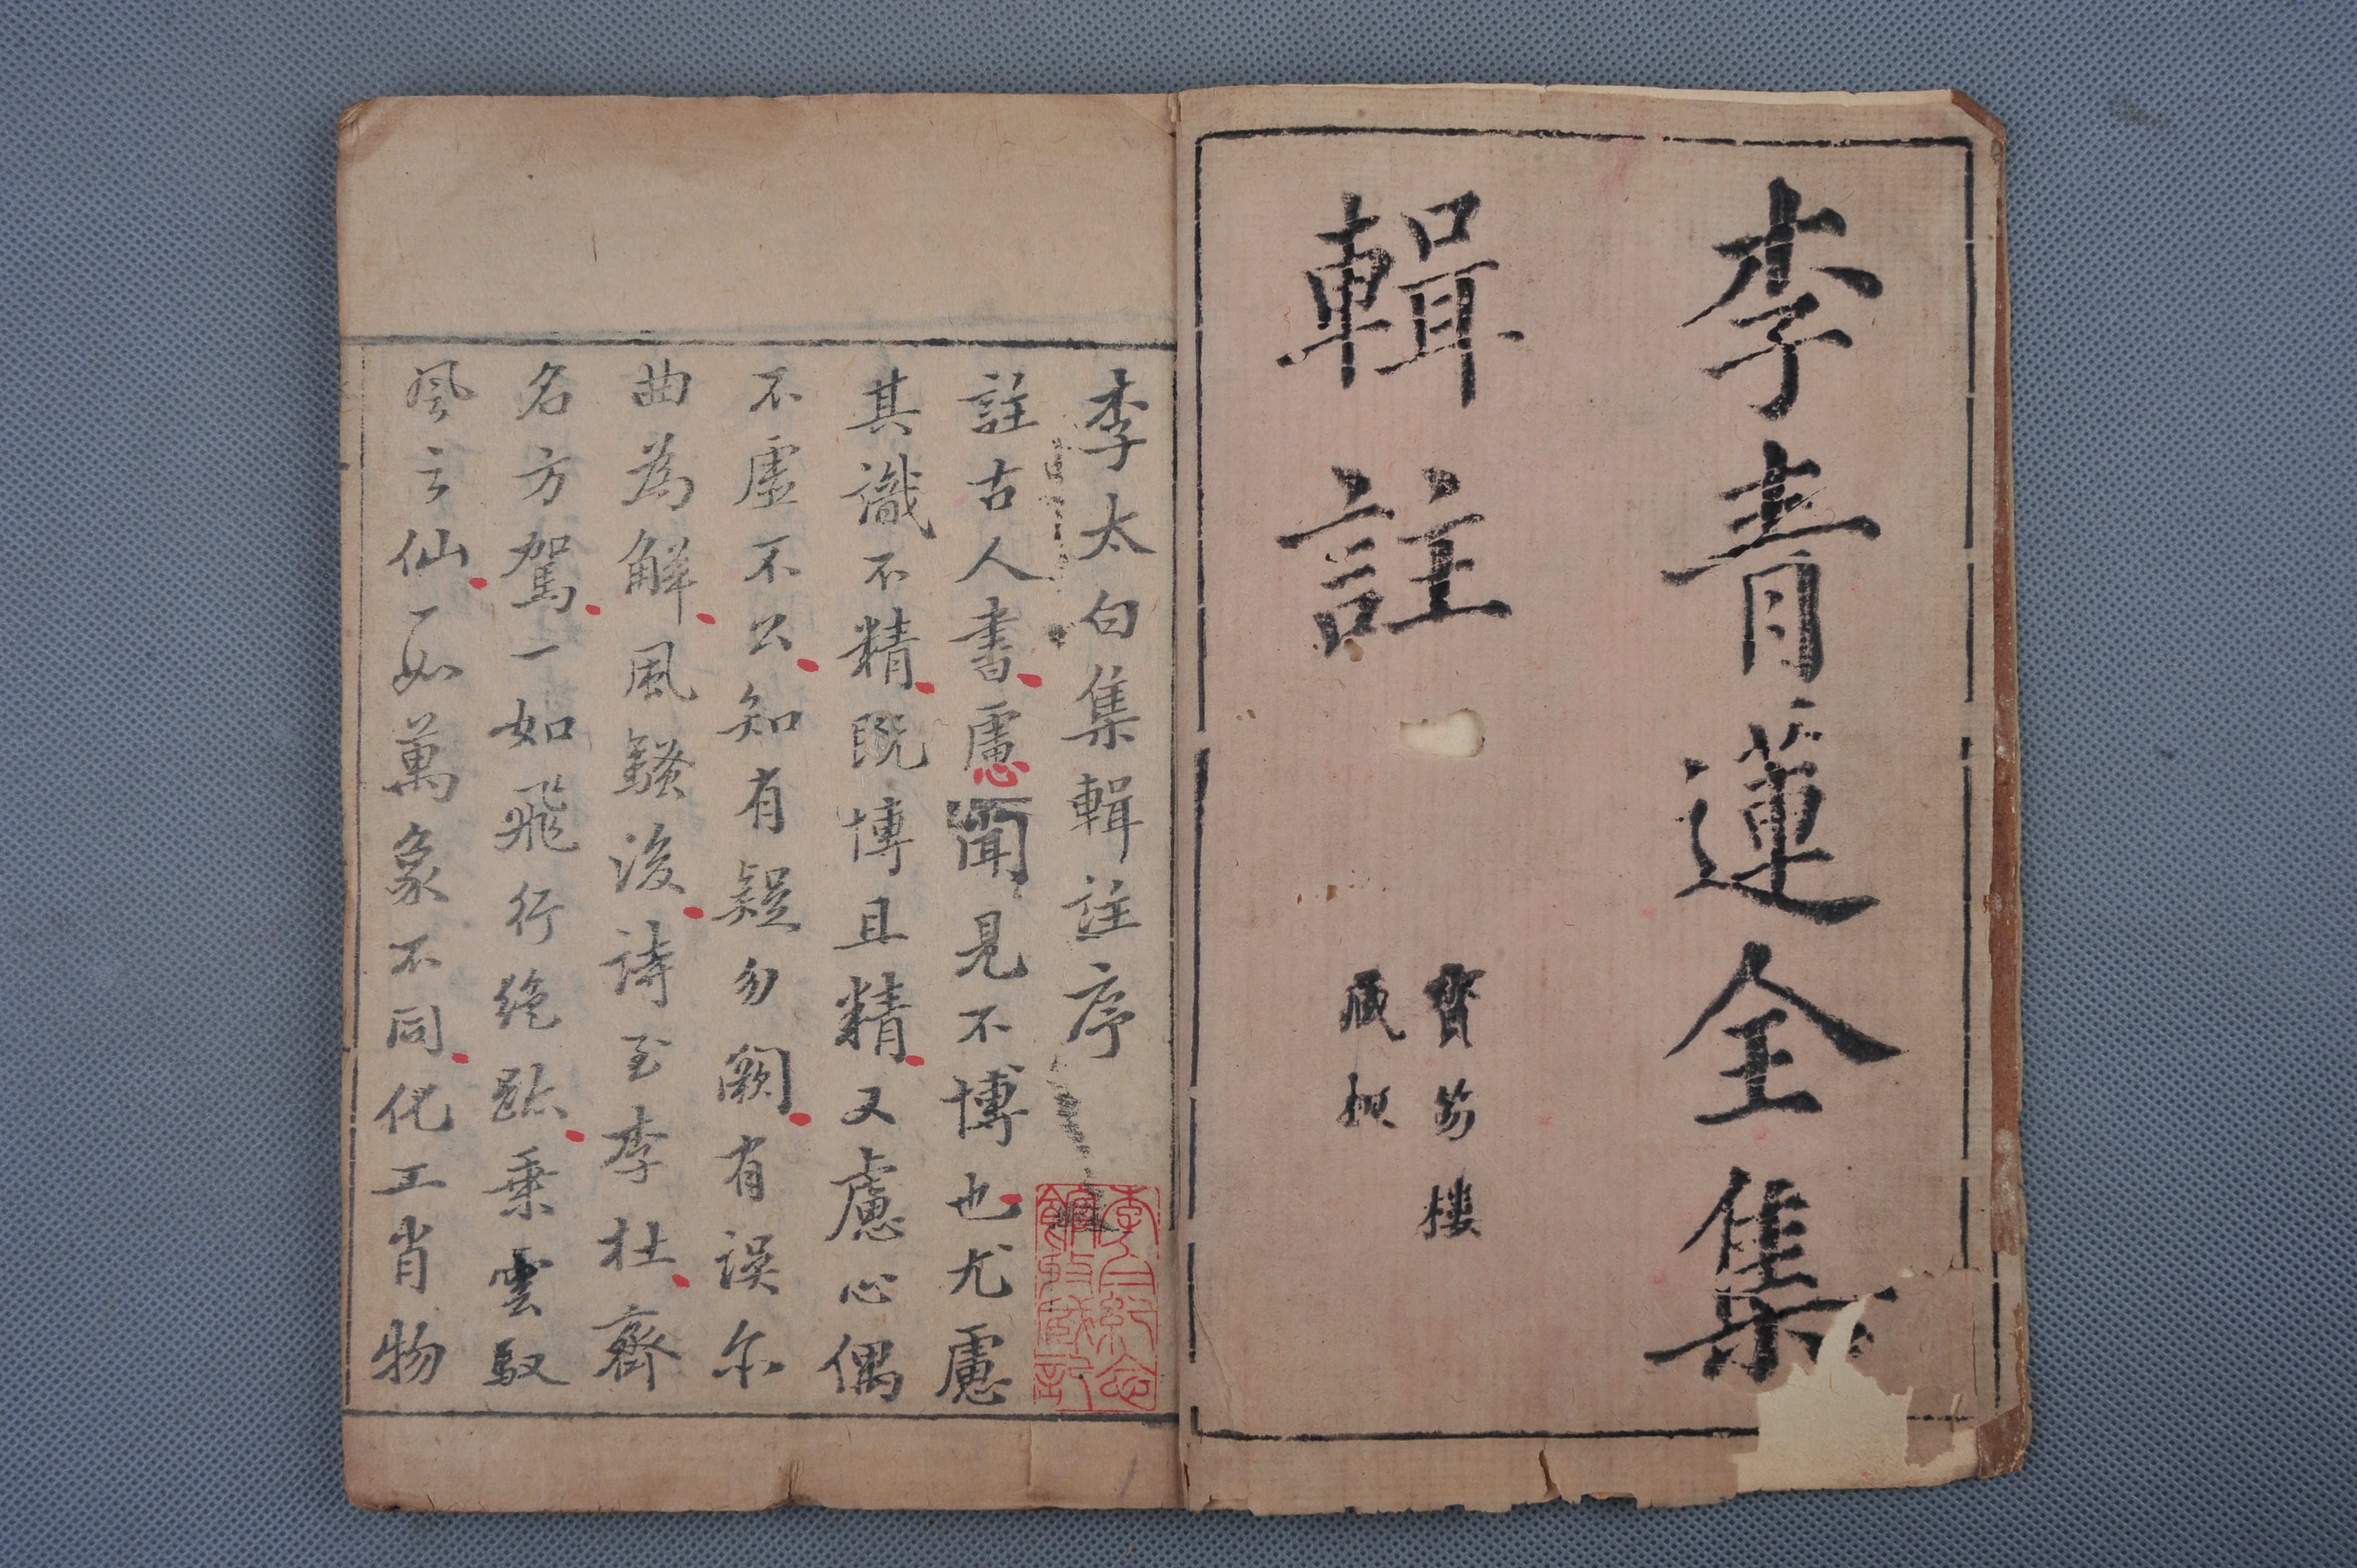 李青蓮全集
輯註
寶笏樓
藏板
李太白集輯註序
註古人書慮聞見不博也尤慮
其識不精既博且精又慮心偶
不虛不公知有疑勿闕有誤尔
曲為解風騷後詩至李杜齊
名方駕一如飛行絕跡乗雲馭
風之仙一如萬象不同化工肖物
李白紀念
館所藏記